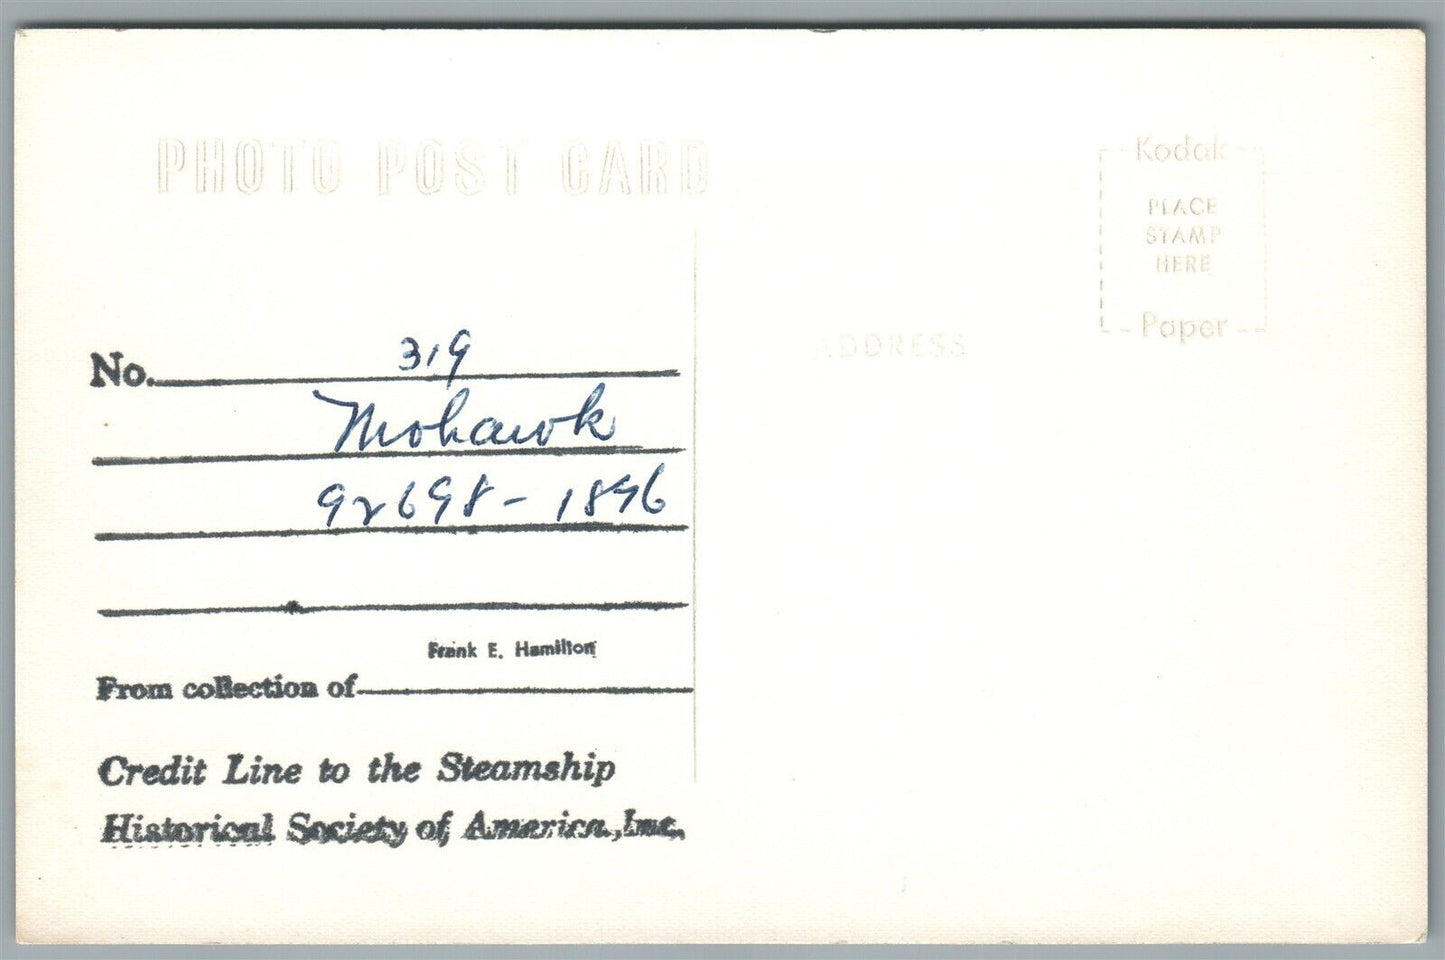 PHOTO POST CARD
Kodak
PLACE
STAMP
HERE
Paper
ADDRESS
No. 319
Mohawk
92698 - 1896
Frank E. Hamilton
From collection of
Credit Line to the Steamship
Historical Society of America, Inc.